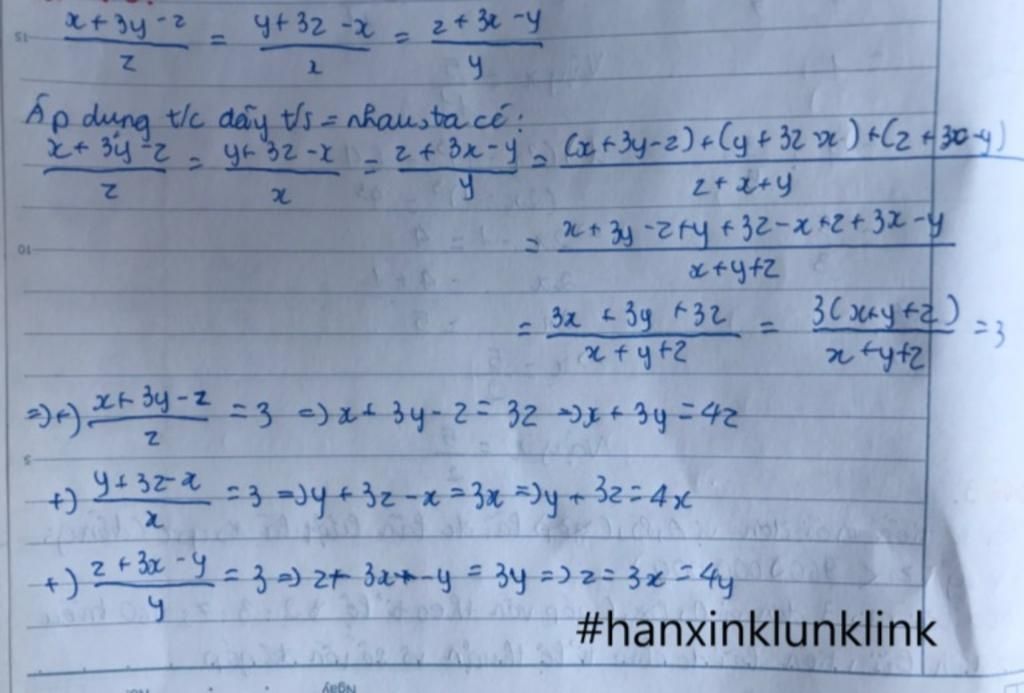 x + 3y - z / z = y + 3z - x / x = z + 3x - y / y
Áp dụng t/c dãy t/s = nhau, ta có:
x + 3y - z / z = y + 3z - x / x = z + 3x - y / y = (x + 3y - z) + (y + 3z - x) + (z + 3x - y) / z + x + y
= x + 3y - z + y + 3z - x + z + 3x - y / x + y + z
= 3x + 3y + 3z / x + y + z = 3(x + y + z) / x + y + z = 3
=> +) x + 3y - z / z = 3 => x + 3y - z = 3z => x + 3y = 4z
+) y + 3z - x / x = 3 => y + 3z - x = 3x => y + 3z = 4x
+) z + 3x - y / y = 3 => z + 3x + - y = 3y => z = 3x = 4y
#hanxinklunklink
Ngày